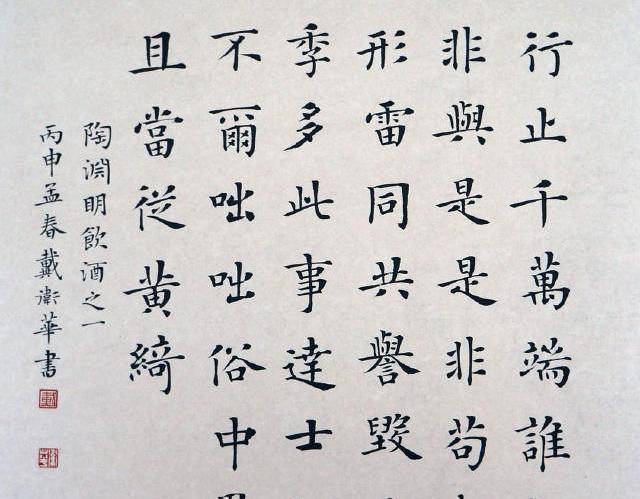 行止千萬端誰
非與是是非苟
形雷同共譽毀
季多此事達士
不爾咄咄俗中
且當從黄綺
陶淵明飲酒之一
丙申孟春戴衛華書